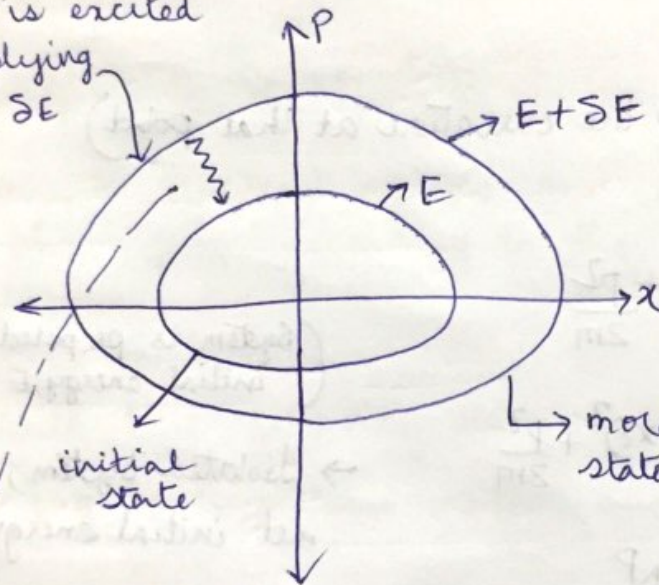 is excited
plying
δE
P
E + δE
E
x
initial
state
state